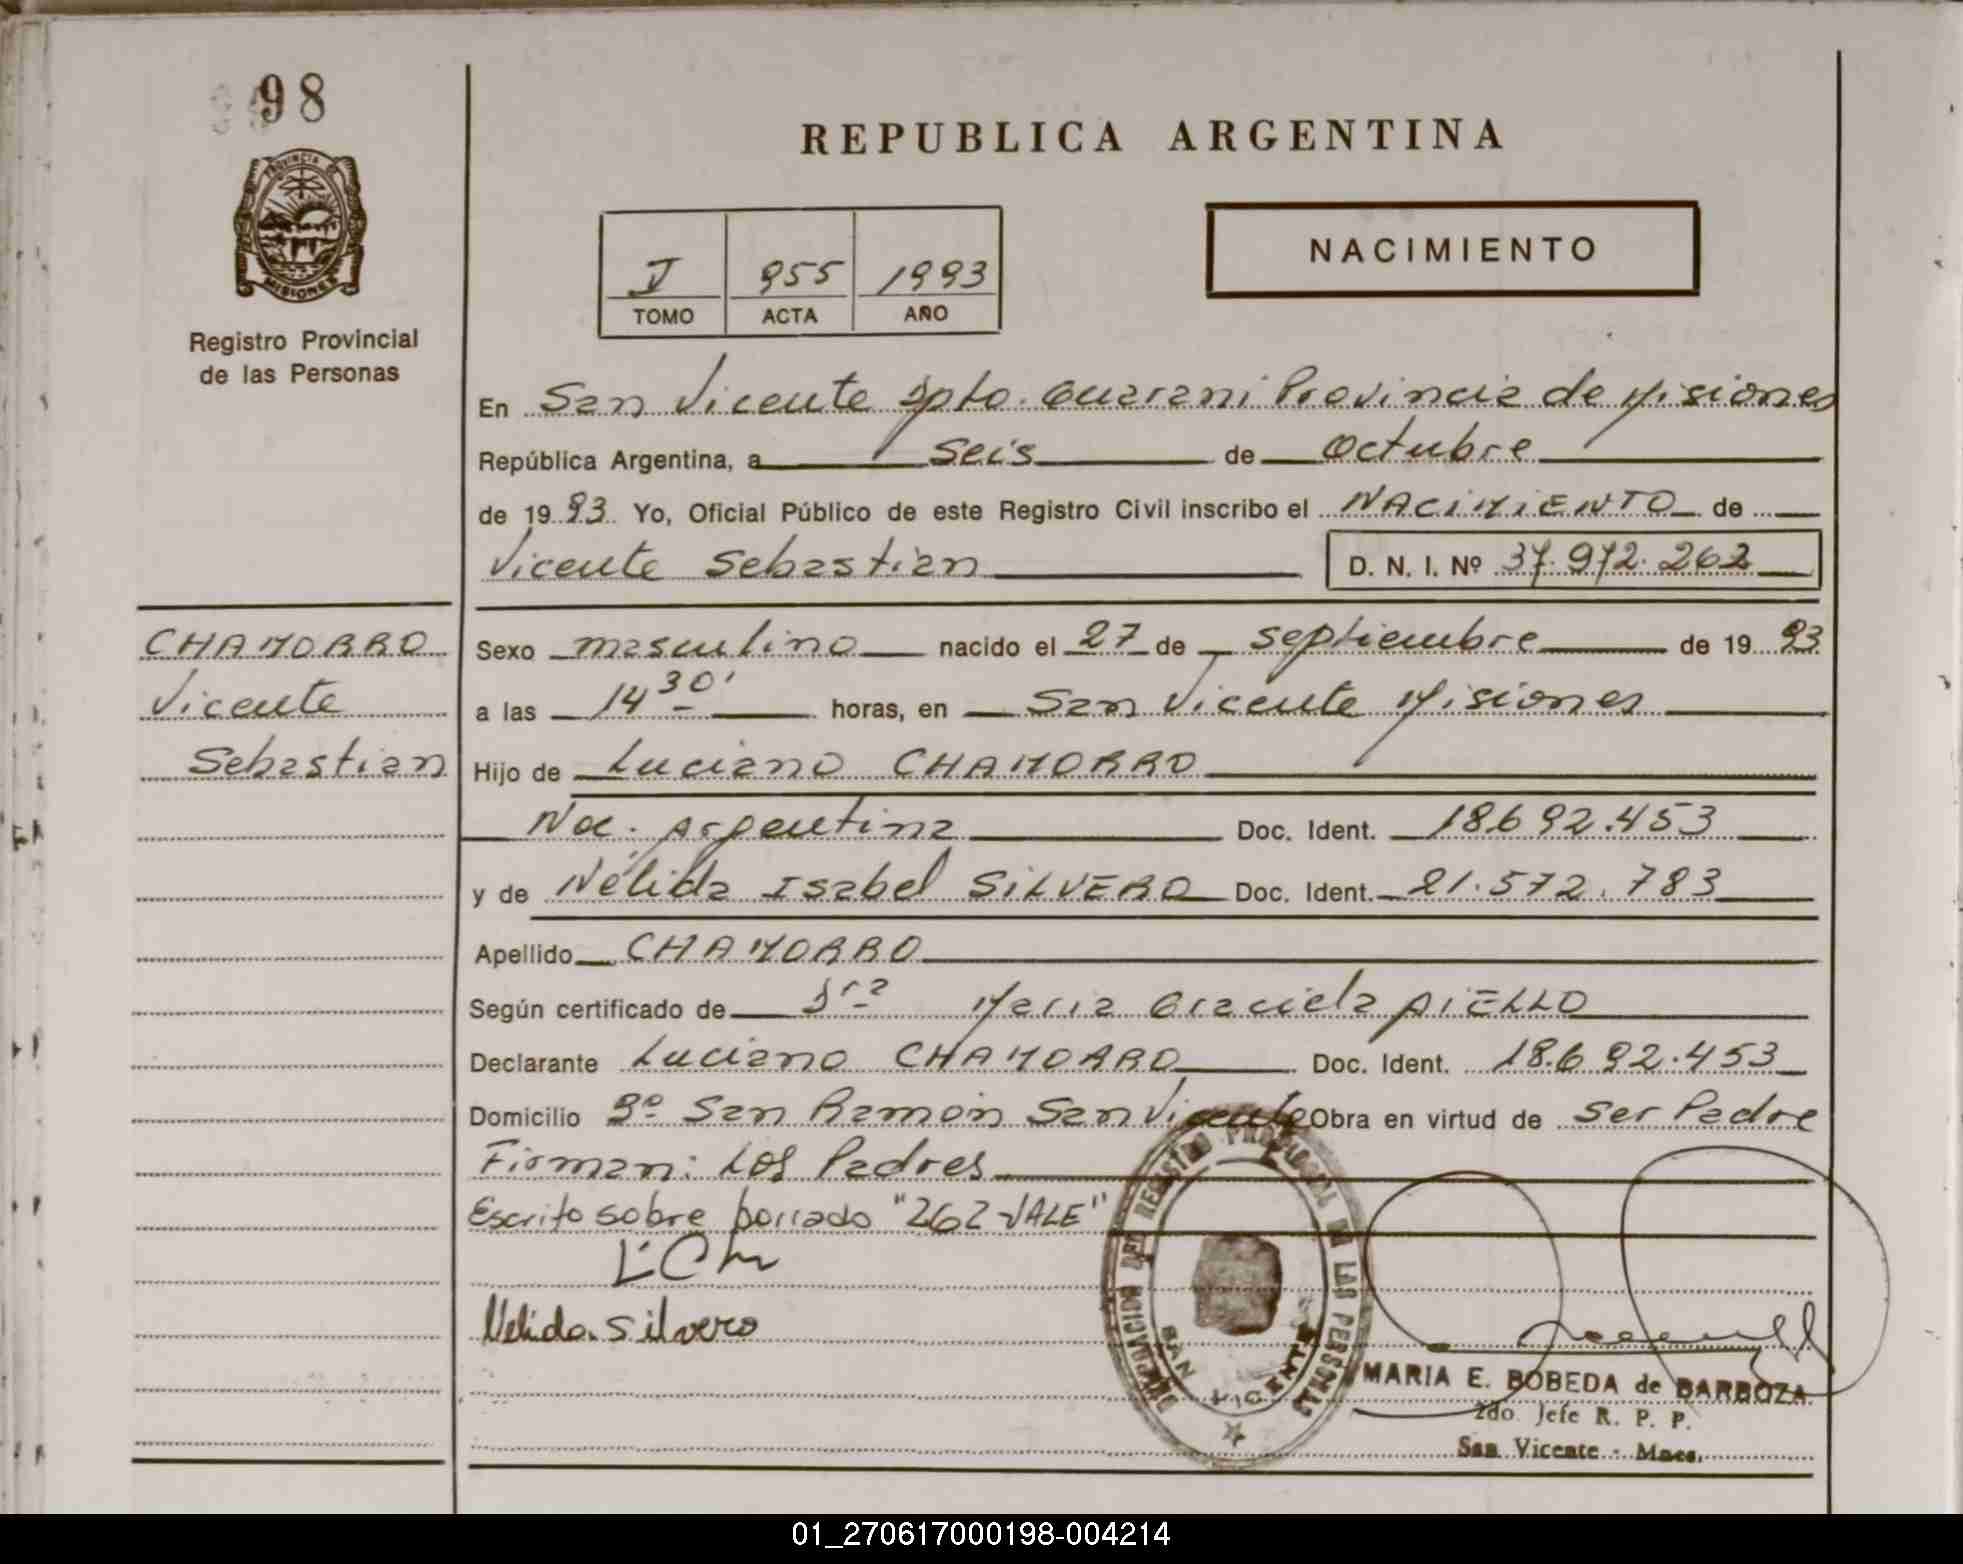 98
PROVINCIA DE
MISIONES
Registro Provincial
de las Personas
REPUBLICA ARGENTINA
NACIMIENTO
V 955 1993
TOMO ACTA AÑO
En San Vicente Dpto. Guarani Provincia de Misiones
República Argentina, a Seis de Octubre
de 1993 Yo, Oficial Público de este Registro Civil inscribo el NACIMIENTO de
Vicente Sebastian D. N. I. Nº 37.972.262
CHAMORRO
Vicente
Sebastian
Sexo masculino nacido el 27 de septiembre de 1993
a las 14 30' horas, en San Vicente Misiones
Hijo de Luciano CHAMORRO
Nac. Argentina Doc. Ident. 18.692.453
y de Nélida Isabel SILVERO Doc. Ident. 21.572.783
Apellido CHAMORRO
Según certificado de Dra Maria Graciela AIELLO
Declarante Luciano CHAMORRO Doc. Ident. 18.692.453
Domicilio Bº San Ramón San Vicente Obra en virtud de Ser Padre
Firman: Los Padres
Escrito sobre borrado "262-VALE"
L Ch
Nelida Silvero
REGISTRO PROVINCIAL DE LAS PERSONAS
SAN VICENTE
MARIA E. BOBEDA de BARBOZA
2do. Jefe R. P. P.
San Vicente - Mnes.
01_270617000198-004214